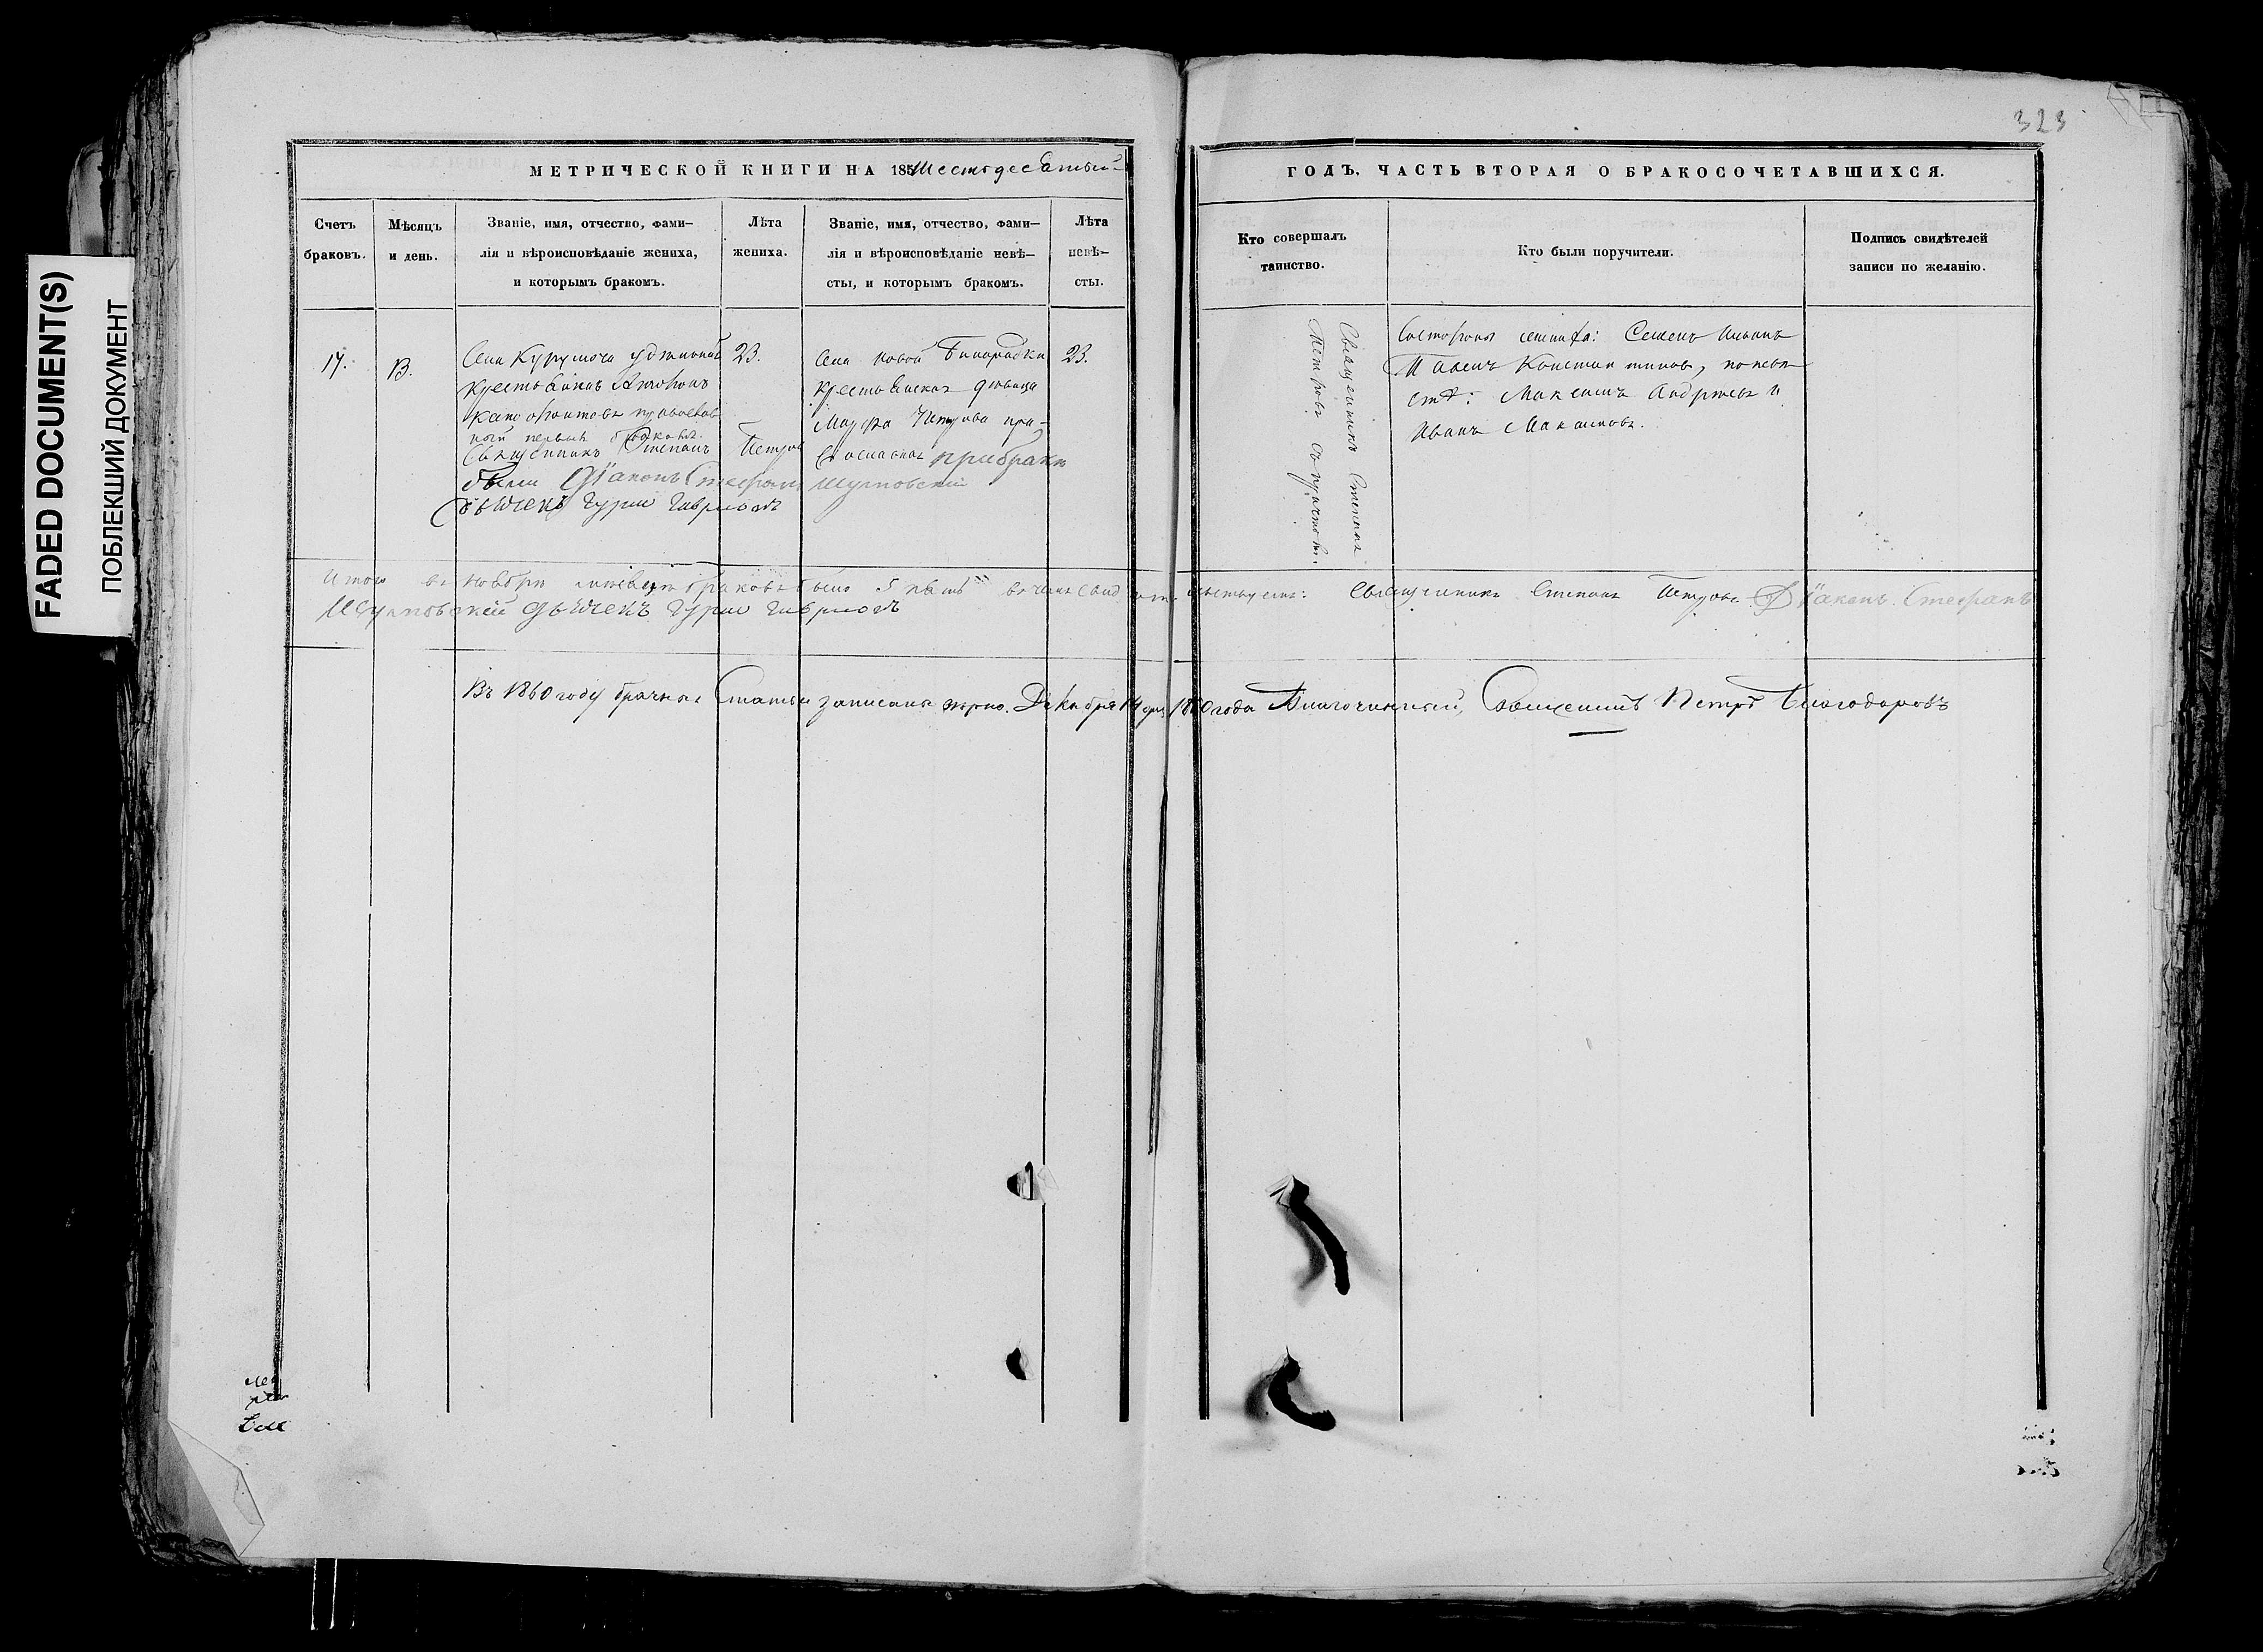 FADED DOCUMENT(S)
ПОБЛЕКШИЙ ДОКУМЕНТ
323
МЕТРИЧЕСКОЙ КНИГИ НА 185 Шестдесятый
ГОДЪ. ЧАСТЬ ВТОРАЯ О БРАКОСОЧЕТАВШИХСЯ.
Счетъ
браковъ.
Мѣсяцъ
и день.
Званіе, имя, отчество, фами—
лія и вѣроисповѣданіе жениха,
и которымъ бракомъ.
Лѣта
жениха.
Званіе, имя, отчество, фами—
лія и вѣроисповѣданіе невѣ—
сты, и которымъ бракомъ.
Лѣта
невѣ—
сты.
Кто совершалъ
таинство.
Кто были поручители.
Подпись свидѣтелей
записи по желанію.
17.
13.
Села Курумоча удѣльный
крестьянинъ
православ
ный первый бракомъ.
23.
Села Новой Бинарадки
крестьянская дѣвица
Марфа Петрова пра-
вославная
23.
Священникъ Степанъ Петровъ
при бракѣ
были Діаконъ Стефанъ
дьячекъ Гурій Гавриловъ
Священникъ Степанъ
Петровъ съ причтомъ.
По женихѣ: Семенъ Ивановъ
и Павелъ Константиновъ, по невѣ
стѣ: Максимъ Андреевъ и
Иванъ Максимовъ.
Итого въ ноябрѣ мѣсяцѣ браковъ было 5 пять въ чемъ свидѣтельствуемъ: Священникъ Степанъ Петровъ Діаконъ Стефанъ
дьячекъ Гурій Гавриловъ
Въ 1860 году брачныя Статьи записаны вѣрно. Декабря 14 дня 1860 года Благочинный, Священникъ Петръ Благодаровъ